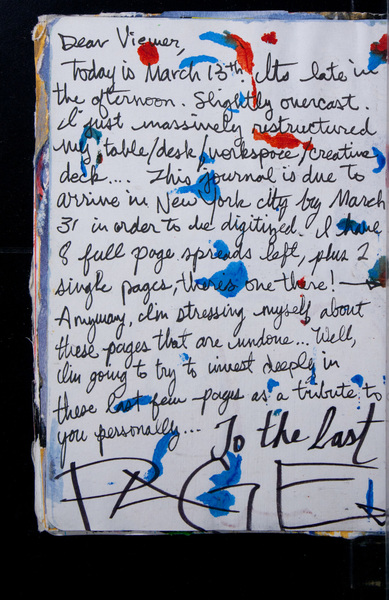 Dear Viewer,
Today is March 13th. Its late in
the afternoon. Slightly overcast.
I just massively restructured
my table/desk/workspace/creative
deck.... This journal is due to
arrive in New York city by March
31 in order to be digitized. I have
8 full page spreads left, plus 2
single pages, theres one there! →
Anyway, Im stressing myself about
these pages that are undone... Well,
Im going to try to invest deeply in
these last few pages as a tribute to
you personally... To the last
PAGE